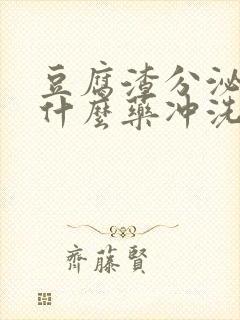 豆腐渣分泌
什麼藥沖洗
齊藤賢